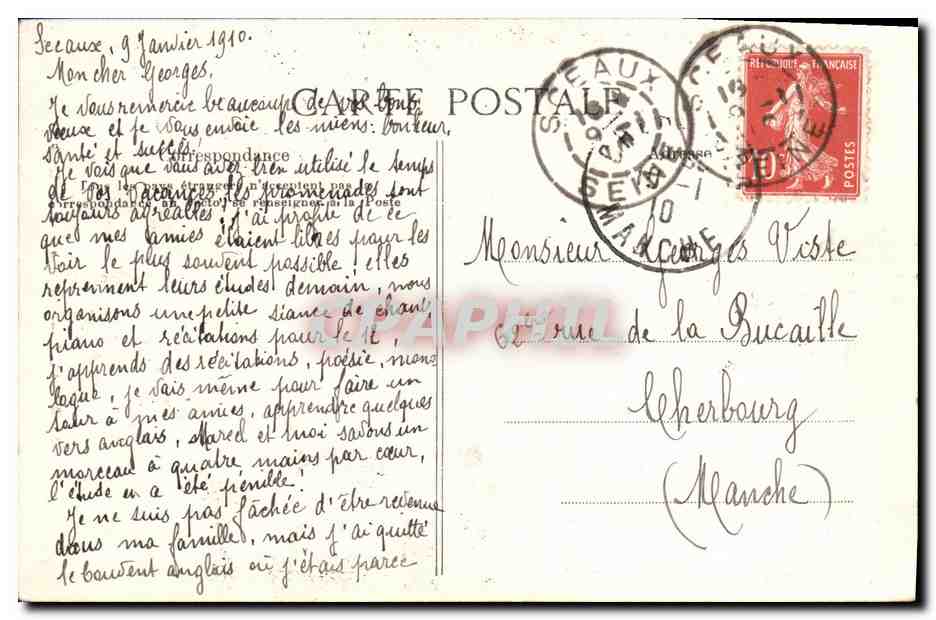 Sceaux, 9 Janvier 1910.
Mon cher Georges,
Je vous remercie beaucoup de vos bons
vœux et je vous envoie les miens: bonheur,
santé et succès.
Je vois que vous avez bien utilisé le temps
de vos vacances, les promenades sont
toujours agréables; j'ai profité de ce
que mes amies étaient libres pour les
voir le plus souvent possible; elles
reprennent leurs études demain, nous
organisons une petite séance de chant,
piano et récitations pour le
j'apprends des récitations, poésie, mono-
logue, je vais même pour faire un
tour à mes amies, apprendre quelques
vers anglais, Marcel et moi savons un
morceau à quatre mains par cœur,
l'étude en a été pénible!
Je ne suis pas fâchée d'être revenue
dans ma famille, mais j'ai quitté
le couvent anglais où j'étais parce
CARTE POSTALE
Correspondance
Tous les pays étrangers n'acceptent pas
correspondance au recto, se renseigner à la Poste
Adresse
SCEAUX
SEINE
SCEAUX
SEINE
MANCHE
RÉPUBLIQUE FRANÇAISE
10
POSTES
Monsieur Georges Viste
62 bis rue de la Bucaille
Cherbourg
(Manche)
CPAPHIL